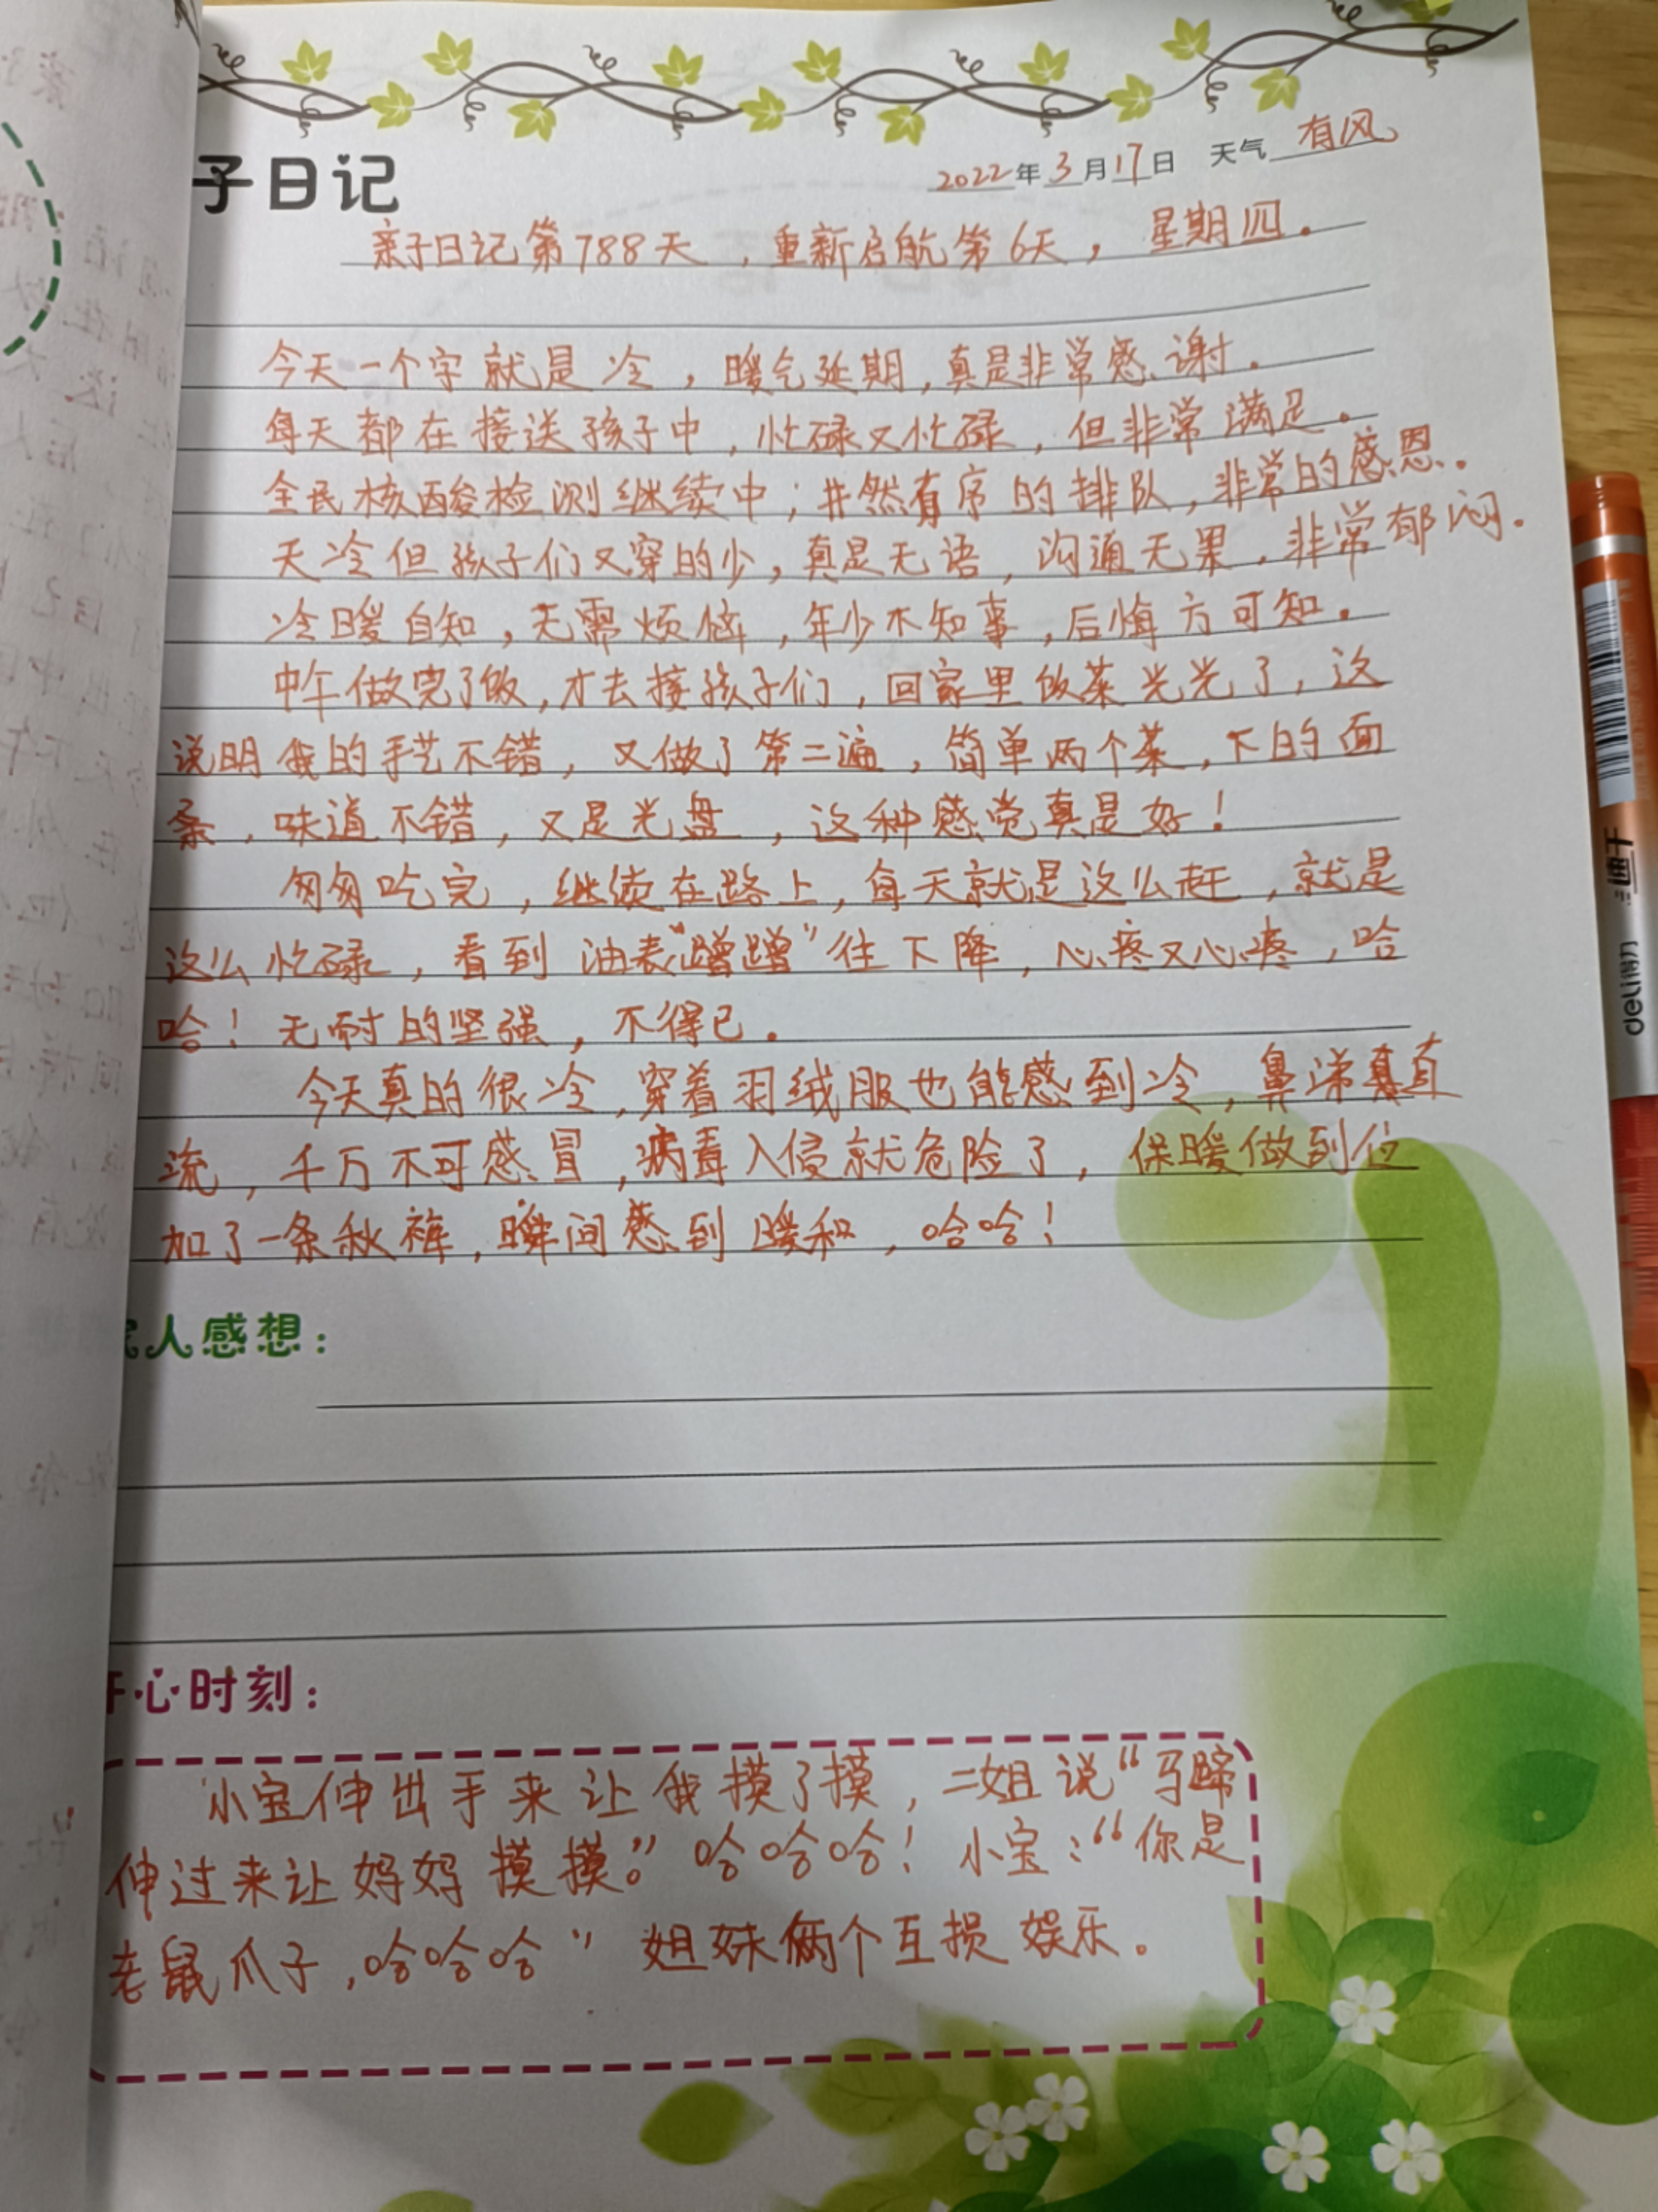 子日记
2022年3月17日 天气 有风
亲子日记第788天，重新启航第6天，星期四。
今天一个字就是冷，暖气延期，真是非常感谢。
每天都在接送孩子中，忙碌又忙碌，但非常满足。
全民核酸检测继续中；井然有序的排队，非常的感恩。
天冷但孩子们又穿的少，真是无语，沟通无果，非常郁闷。
冷暖自知，无需烦恼，年少不知事，后悔方可知。
中午做完了饭，才去接孩子们，回家里饭菜光光了，这
说明我的手艺不错，又做了第二遍，简单两个菜，下的面
条，味道不错，又是光盘，这种感觉真是好！
匆匆吃完，继续在路上，每天就是这么赶，就是
这么忙碌，看到油表“蹭蹭”往下降，心疼又心疼，哈
哈！无耐的坚强，不得已。
今天真的很冷，穿着羽绒服也能感到冷，鼻涕直
流，千万不可感冒，病毒入侵就危险了，保暖做到位
加了一条秋裤，瞬间感到暖和，哈哈！
人感想：
心时刻：
小宝伸出手来让我摸了摸，二姐说“马蹄
伸过来让妈妈摸摸。”哈哈哈！小宝：“你是
老鼠爪子，哈哈哈”姐妹俩个互损娱乐。
deli得力